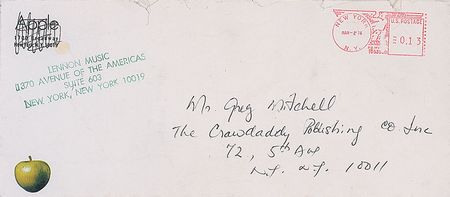 Apple
1700 Broadway
LENNON MUSIC
1370 AVENUE OF THE AMERICAS
SUITE 603
NEW YORK, NEW YORK 10019
NEW YORK
MAR-2'74
N.Y.
U.S. POSTAGE
0.13
Mr Greg Mitchell
The Crawdaddy Publishing Co Inc
72, 5th Ave
N.Y. N.Y. 10011